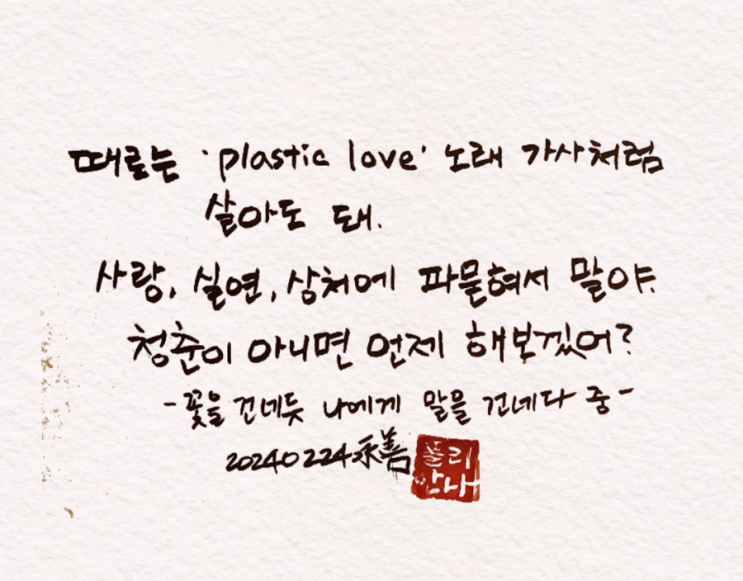 때로는 'plastic love' 노래 가사처럼
살아도 돼.
사랑, 실연, 상처에 파묻혀서 말야.
청춘이 아니면 언제 해보겠어?
-꽃을 건네듯 나에게 말을 건네다 중-
20240224 永善
폴리
안나